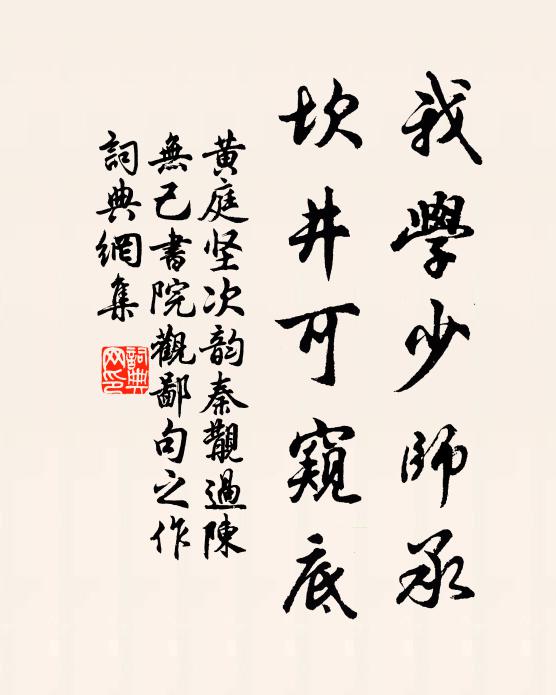 我學少師承
坎井可窺底
黄庭坚次韵秦覯過陳
無己書院觀鄙句之作
詞典網集
詞典
网印